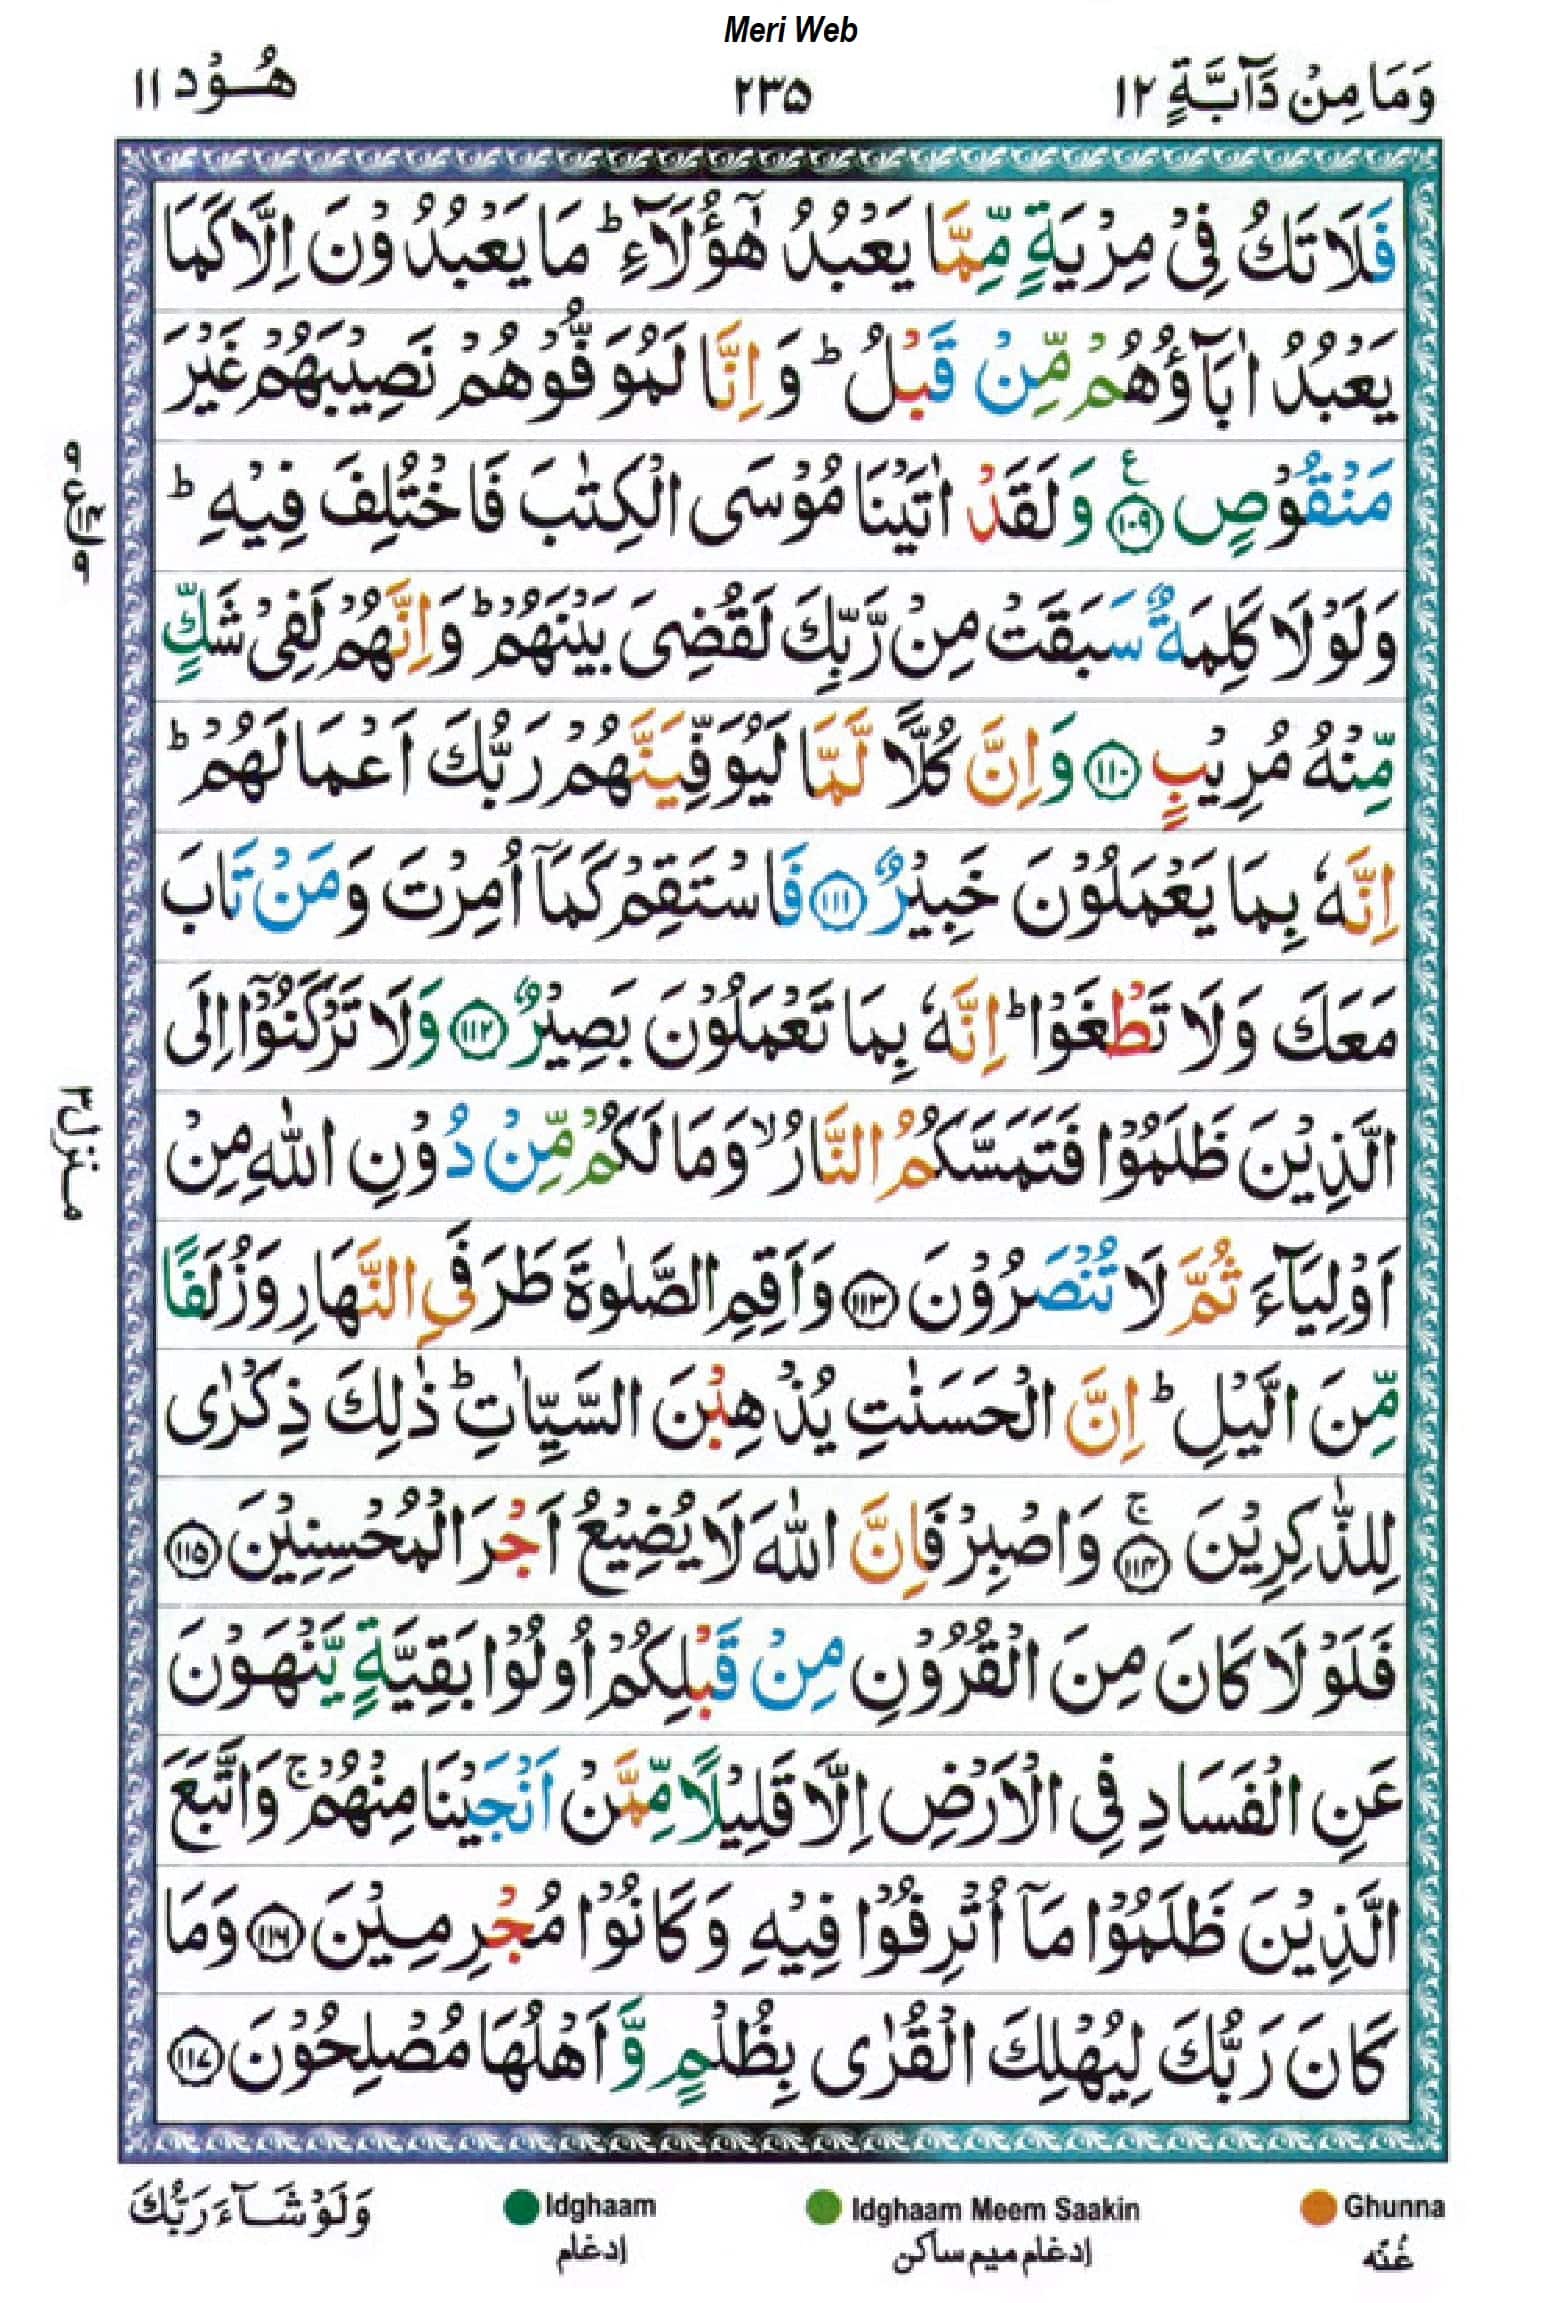 Meri Web
وَمَا مِنْ دَآبَّةٍ ١٢
٢٣٥
هُوْد ١١
فَلَا تَكُ فِیْ مِرْیَةٍ مِّمَّا یَعْبُدُ هٰۤؤُلَآءِ ؕ مَا یَعْبُدُوْنَ اِلَّا كَمَا
یَعْبُدُ اٰبَآؤُهُمْ مِّنْ قَبْلُ ؕ وَ اِنَّا لَمُوَفُّوْهُمْ نَصِیْبَهُمْ غَیْرَ
مَنْقُوْصٍ ۧ ﴿١٠٩﴾ وَ لَقَدْ اٰتَیْنَا مُوْسَی الْكِتٰبَ فَاخْتُلِفَ فِیْهِ ؕ
وَ لَوْ لَا كَلِمَةٌ سَبَقَتْ مِنْ رَّبِّكَ لَقُضِیَ بَیْنَهُمْ ؕ وَ اِنَّهُمْ لَفِیْ شَكٍّ
مِّنْهُ مُرِیْبٍ ﴿١١٠﴾ وَ اِنَّ كُلًّا لَّمَّا لَیُوَفِّیَنَّهُمْ رَبُّكَ اَعْمَالَهُمْ ؕ
اِنَّهٗ بِمَا یَعْمَلُوْنَ خَبِیْرٌ ﴿١١١﴾ فَاسْتَقِمْ كَمَاۤ اُمِرْتَ وَ مَنْ تَابَ
مَعَكَ وَ لَا تَطْغَوْا ؕ اِنَّهٗ بِمَا تَعْمَلُوْنَ بَصِیْرٌ ﴿١١٢﴾ وَ لَا تَرْكَنُوْۤا اِلَی
الَّذِیْنَ ظَلَمُوْا فَتَمَسَّكُمُ النَّارُ ۙ وَ مَا لَكُمْ مِّنْ دُوْنِ اللّٰهِ مِنْ
اَوْلِیَآءَ ثُمَّ لَا تُنْصَرُوْنَ ﴿١١٣﴾ وَ اَقِمِ الصَّلٰوةَ طَرَفَیِ النَّهَارِ وَ زُلَفًا
مِّنَ الَّیْلِ ؕ اِنَّ الْحَسَنٰتِ یُذْهِبْنَ السَّیِّاٰتِ ؕ ذٰلِكَ ذِكْرٰی
لِلذّٰكِرِیْنَ ۚ ﴿١١٤﴾ وَ اصْبِرْ فَاِنَّ اللّٰهَ لَا یُضِیْعُ اَجْرَ الْمُحْسِنِیْنَ ﴿١١٥﴾
فَلَوْ لَا كَانَ مِنَ الْقُرُوْنِ مِنْ قَبْلِكُمْ اُولُوْا بَقِیَّةٍ یَّنْهَوْنَ
عَنِ الْفَسَادِ فِی الْاَرْضِ اِلَّا قَلِیْلًا مِّمَّنْ اَنْجَیْنَا مِنْهُمْ ۚ وَ اتَّبَعَ
الَّذِیْنَ ظَلَمُوْا مَاۤ اُتْرِفُوْا فِیْهِ وَ كَانُوْا مُجْرِمِیْنَ ﴿١١٦﴾ وَ مَا
كَانَ رَبُّكَ لِیُهْلِكَ الْقُرٰی بِظُلْمٍ وَّ اَهْلُهَا مُصْلِحُوْنَ ﴿١١٧﴾
منزل ٣
وَلَوْ شَآءَ رَبُّكَ
Idghaam
Idghaam Meem Saakin
Ghunna
اِدغام
اِدغام میم ساکن
غُنّه